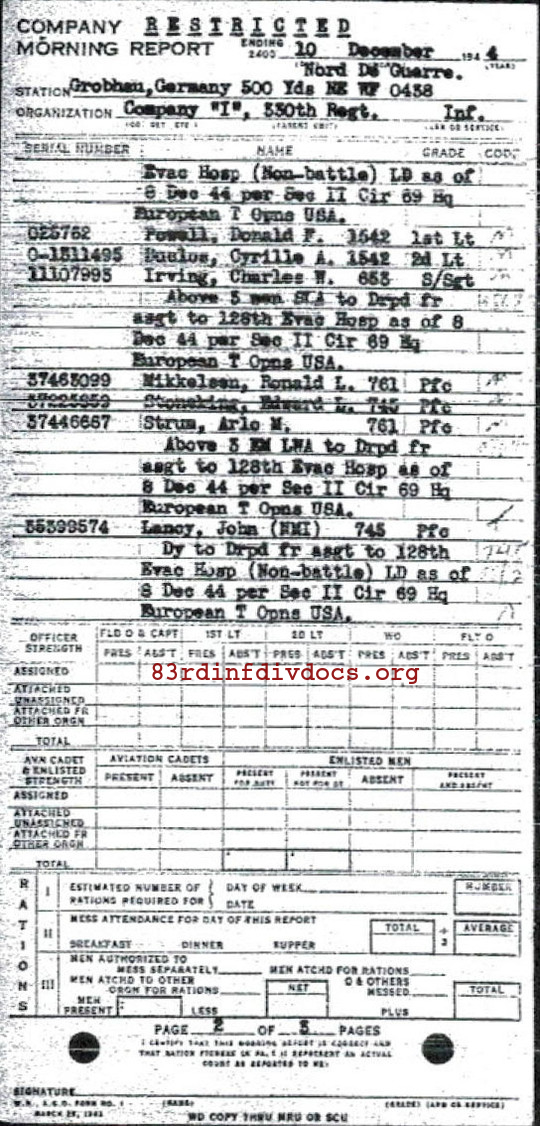 RESTRICTED
COMPANY
MORNING REPORT ENDING 2400 10 December 194 4
(YEAR)
"Nord De Guerre.
STATION Grobhau, Germany 500 Yds NE WF 0438
ORGANIZATION Company "I", 330th Regt. Inf.
(CO, DET, ETC) (PARENT UNIT) (ARM OR SERVICE)
SERIAL NUMBER NAME GRADE CODE
Evac Hosp (Non-battle) LD as of
8 Dec 44 per Sec II Cir 69 Hq
European T Opns USA.
025762 Powell, Donald F. 1542 1st Lt
O-1311495 Cyrille A. 1542 2d Lt
11107993 Irving, Charles W. 653 S/Sgt
Above 3 men SLA to Drpd fr
asgt to 128th Evac Hosp as of 8
Dec 44 per Sec II Cir 69 Hq
European T Opns USA.
37463099 Mikkelsen, Ronald L. 761 Pfc
Stoneking, Edward L. 745 Pfc
37446667 Strum, Arlo M. 761 Pfc
Above 3 EM LWA to Drpd fr
asgt to 128th Evac Hosp as of
8 Dec 44 per Sec II Cir 69 Hq
European T Opns USA.
35399574 Lancy, John (NMI) 745 Pfc
Dy to Drpd fr asgt to 128th
Evac Hosp (Non-battle) LD as of
8 Dec 44 per Sec II Cir 69 Hq
European T Opns USA.
OFFICER STRENGTH FLD O & CAPT 1ST LT 2D LT WO FLT O
PRES ABS'T PRES ABS'T PRES ABS'T PRES ABS'T PRES ABS'T
83rdinfdivdocs.org
ASSIGNED
ATTACHED UNASSIGNED
ATTACHED FR OTHER ORGN
TOTAL
AVN CADET & ENLISTED STRENGTH AVIATION CADETS ENLISTED MEN
PRESENT ABSENT PRESENT FOR DUTY PRESENT NOT FOR DY ABSENT PRESENT AND ABSENT
ASSIGNED
ATTACHED UNASSIGNED
ATTACHED FR OTHER ORGN
TOTAL
RATIONS
I ESTIMATED NUMBER OF RATIONS REQUIRED FOR DAY OF WEEK NUMBER
DATE
II MESS ATTENDANCE FOR DAY OF THIS REPORT TOTAL ÷ 3 AVERAGE
BREAKFAST DINNER SUPPER
III MEN AUTHORIZED TO MESS SEPARATELY MEN ATCHD FOR RATIONS
MEN ATCHD TO OTHER ORGN FOR RATIONS NET O & OTHERS MESSED TOTAL
MEN PRESENT LESS PLUS
PAGE 2 OF 3 PAGES
I CERTIFY THAT THIS MORNING REPORT IS CORRECT AND
THAT RATION FIGURES REPRESENT AN ACTUAL
COUNT AS REPORTED TO ME:
SIGNATURE
W.D., A.G.O. FORM NO. 1 (NAME) (GRADE) (ARM OR SERVICE)
WD COPY THRU MRU OR SCU